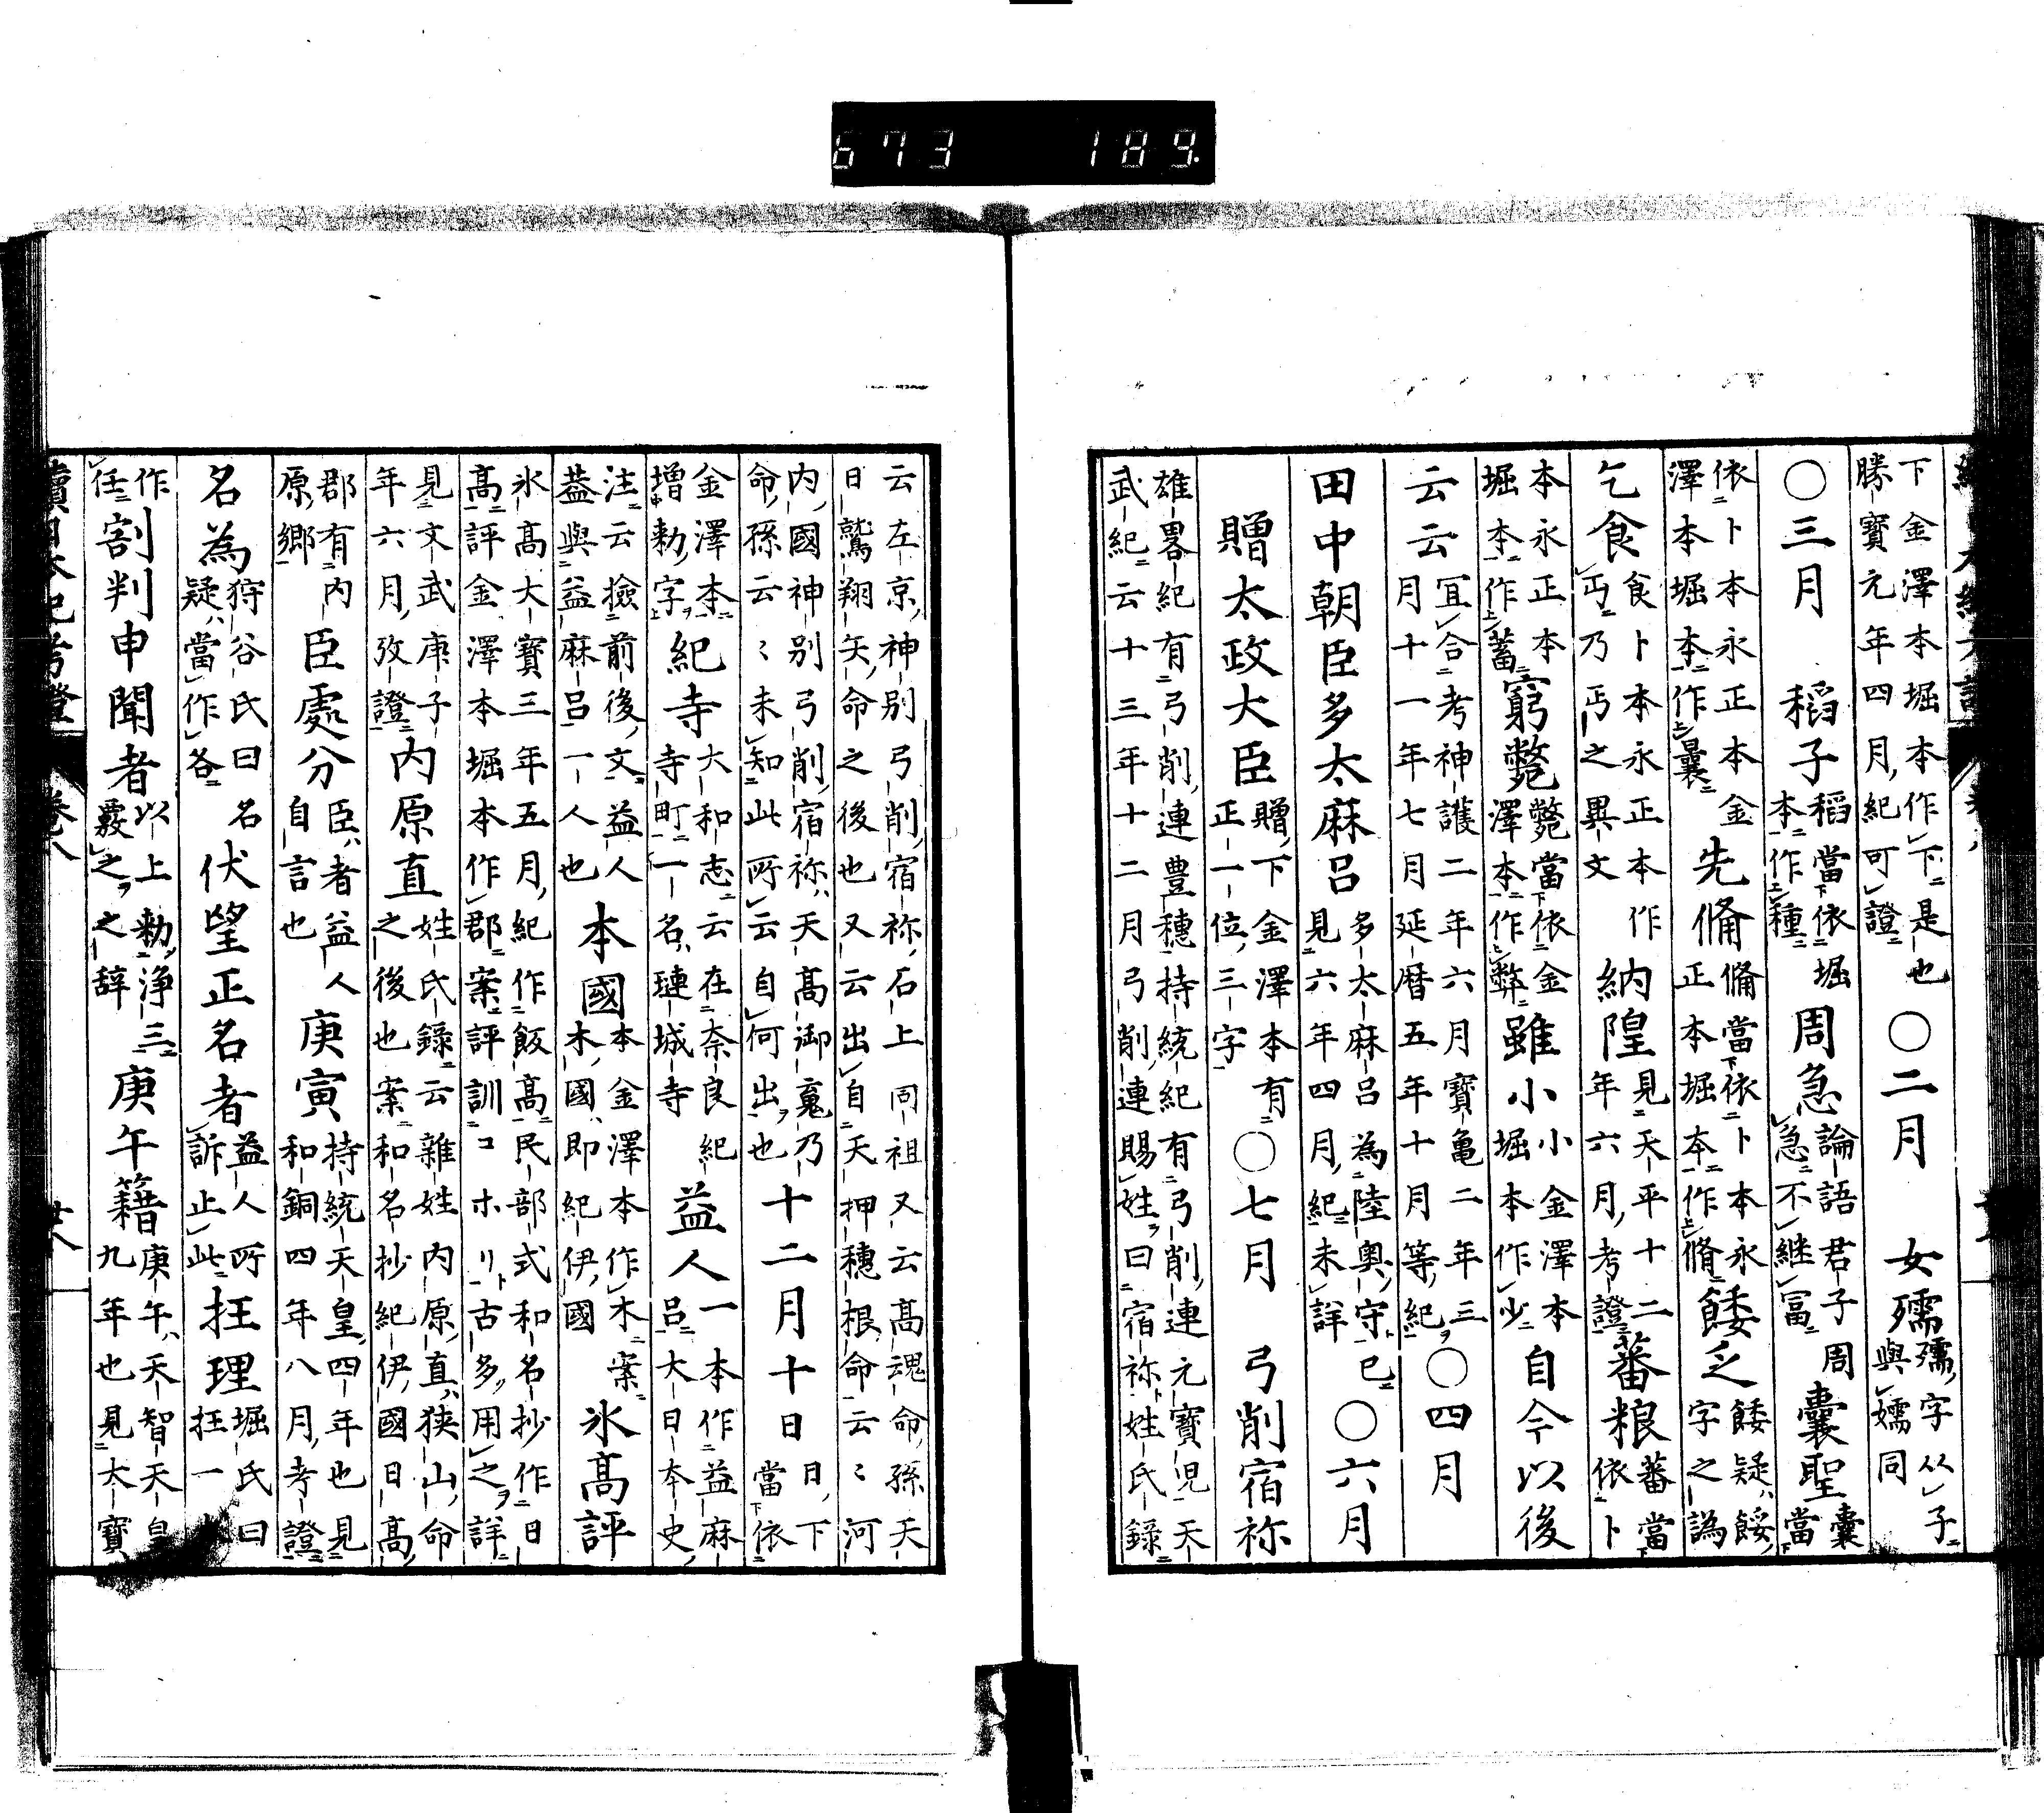 673 189
下金澤本堀本作下是也
勝寶元年四月紀可證
○二月 女孺
孺字从子
與嬬同
○三月 稻子
稻當依堀
本作種
周急
論語君子周
急不継冨
嚢聖
嚢當
依卜本永正本金
澤本堀本作曩
先脩
脩當依卜本永
正本堀本作脩
餧乏
餧疑餒
字之譌
乞食
食卜本永正本作
丐乃丐之異文
納隍
見天平十二
年六月考證
蕃粮
蕃當
依卜
本永正本
堀本作蓄
窮斃
斃當依金
澤本作弊
雖小
小金澤本
堀本作少
自今以後
云云
冝合考神護二年六月寶亀二年三
月十一年七月延暦五年十月等紀
○四月
田中朝臣多太麻呂
多太麻呂為陸奥守已
見六年四月紀未詳
○六月
贈太政大臣
贈下金澤本有
正一位三字
○七月 弓削宿祢
雄畧紀有弓削連豊穗持統紀有弓削連元寶児天
武紀云十三年十二月弓削連賜姓曰宿祢姓氏錄
云左京神别弓削宿祢石上同祖又云高魂命孫天
日鷲翔矢命之後也又云出自天押穗根命云〻河
内國神别弓削宿祢天高御䰟乃
命孫云〻未知此所云自何出也
十二月十日
日下
當依
金澤本
増勅字
紀寺
大和志云在奈良紀
寺町一名璉城寺
益人
一本作益麻
呂大日本史
注云撿前後文益人
葢與益麻呂一人也
本國
本金澤本作木案
木國即紀伊國
氷高評
氷高大寶三年五月紀作飯高民部式和名抄作日
高評金澤本堀本作郡案評訓コホリ古多用之詳
見文武庚子
年六月攷證
内原直
姓氏錄云雜姓内原直狭山命
之後也案和名抄紀伊國日高
郡有内
原郷
臣處分
臣者益人
自言也
庚寅
持統天皇四年也見
和銅四年八月考證
名為
狩谷氏曰名
疑當作各
伏望正名者
益人所
訴止此
抂理
堀氏曰
抂一
作
任
割判申聞者
以上勅淨三
覈之之辞
庚午籍
庚午天智天皇
九年也見大寶
續日本紀考證
卷八